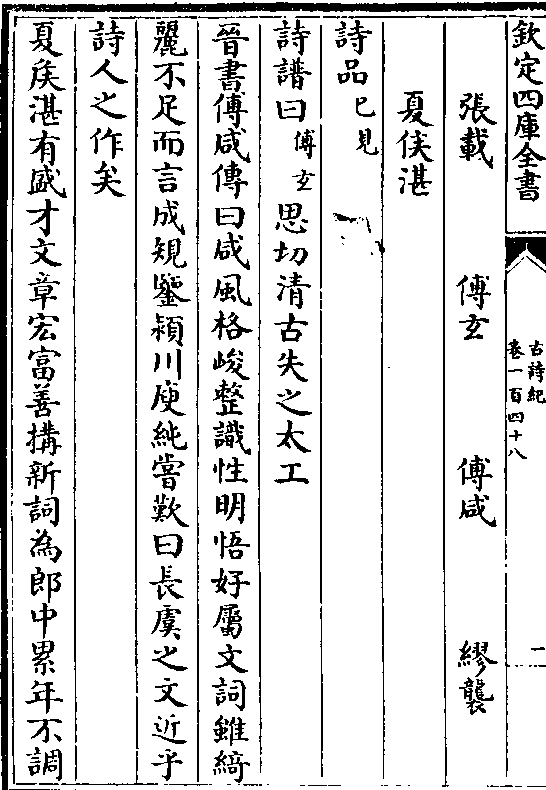 欽定四庫全書
古詩紀
卷一百四十八
一
張載 傅玄 傅咸 繆襲
夏侯湛
詩品已見
詩譜曰傅玄思切清古失之太工
晉書傅咸傳曰咸風格峻整識性明悟好屬文詞雖綺
麗不足而言成規鑒潁川庾純嘗歎曰長虞之文近乎
詩人之作矣
夏侯湛有盛才文章宏富善搆新詞為郎中累年不調